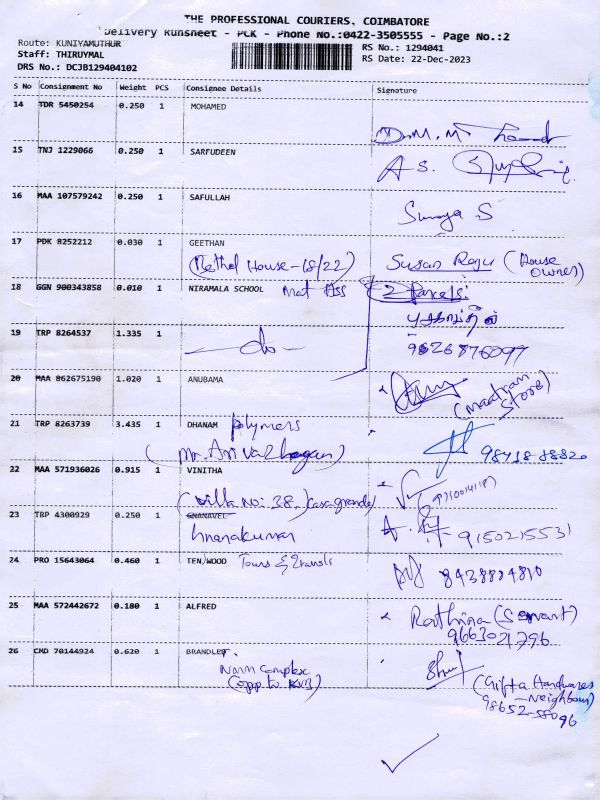 THE PROFESSIONAL COURIERS, COIMBATORE
Delivery Runsheet - PCK - Phone No.:0422-3505555 - Page No.:2
Route: KUNIYAMUTHUR
RS No.: 1294041
Staff: THIRUYMAL
RS Date: 22-Dec-2023
DRS No.: DCJB129404102
S No Consignment No Weight PCS Consignee Details Signature
14 TDR 5450254 0.250 1 MOHAMED
15 TNJ 1229066 0.250 1 SARFUDEEN
A S.
16 MAA 107579242 0.250 1 SAFULLAH
Suraya S
17 PDK 8252212 0.030 1 GEETHAN
(Bethel House - 18/22) Susan Raju (House Owner)
18 GGN 900343858 0.010 1 NIRAMALA SCHOOL Mat Ass 2 Parcels:
19 TRP 8264537 1.335 1
- do - 9626876097
20 MAA 862675190 1.020 1 ANUBAMA
(Maatram Store)
21 TRP 8263739 3.435 1 DHANAM Polymers
(Mr. Arivalhagan) 98438 88820
22 MAA 571936026 0.915 1 VINITHA
(Villa No: 38, Casagrande)
23 TRP 4300929 0.250 1 GNANAVEL
Gnanakumar 9150215531
24 PRO 15643064 0.460 1 TEN WOOD Tours & Travels
8438884810
25 MAA 572442672 0.180 1 ALFRED
Rathina (Servant)
9663021796
26 CMD 70144924 0.620 1 BRANDLET
Complex
(opp to KVB)
(Gifta Hardwares
- Neighbour)
98652-58096